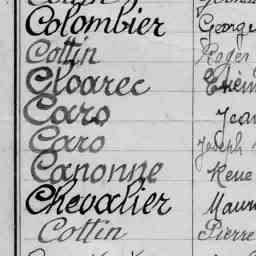 Colombier George
Cottin Roger
Cloarec
Caro Jean
Caro Joseph
Canonne Rene
Chevalier Maur
Cottin Pierre